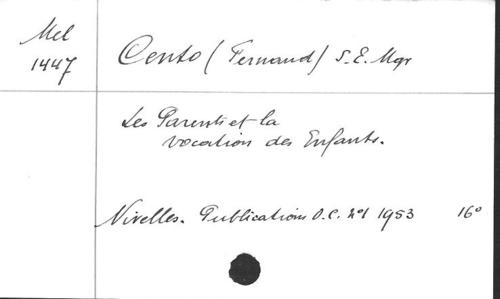 Mel
1447
Cento (Fernand) S.E. Mgr
Les Parents et la
vocation des Enfants.
Nivelles. Publications O.C. nº1 1953 16º